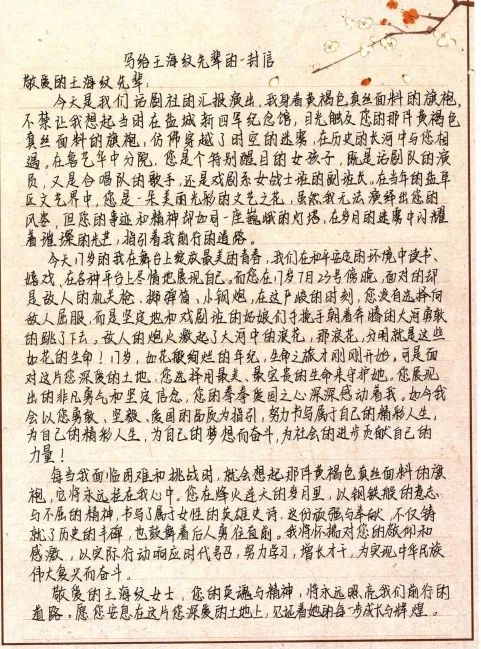 写给王海纹先辈的一封信
敬爱的王海纹先辈：
今天是我们话剧社的汇报演出，我身着黄褐色真丝面料的旗袍，
不禁让我想起当时在盐城新四军纪念馆，目光触及您的那件黄褐色
真丝面料的旗袍，仿佛穿越了时空的迷雾，在历史的长河中与您相
遇。在鲁艺华中分院，您是个特别醒目的女孩子，既是话剧队的演
员，又是合唱队的歌手，还是戏剧系女战士班的副班长。在当年的盐阜
区文艺界中，您是一朵美丽光彩的文艺之花，虽然我无法演绎出您的
风姿，但您的事迹和精神却如同一座巍峨的灯塔，在岁月的迷雾中闪耀
着璀璨的光芒，指引着我前行的道路。
今天17岁的我在舞台上绽放最美的青春，我们在和平安定的环境中读书、
嬉戏，在各种平台上尽情地展现自己。而您在17岁7月23号傍晚，面对的却
是敌人的机关枪、掷弹筒、小钢炮，在这严峻的时刻，您没有选择向
敌人屈服，而是坚定地和戏剧班的姑娘们手挽手朝着奔腾的大河勇敢
的跳了下去。敌人的炮火激起了大河中的浪花，那浪花，分明就是这些
如花的生命！17岁，如花般绚烂的年纪，生命之旅才刚刚开始，可是面
对这片您深爱的土地，您选择用最美、最宝贵的生命来守护她。您展现
出的非凡勇气和坚定信念，您的拳拳爱国之心深深感动着我。如今我
会以您勇敢、坚毅、爱国的品质为指引，努力书写属于自己的精彩人生，
为自己的精彩人生，为自己的梦想而奋斗，为社会的进步贡献自己的
力量！
每当我面临困难和挑战时，就会想起那件黄褐色真丝面料的旗
袍，它将永远挂在我心中。您在烽火连天的岁月里，以钢铁般的意志
与不屈的精神，书写了属于女性的英雄史诗。这份顽强与奉献，不仅铸
就了历史的丰碑，也鼓舞着后人勇往直前。我将怀揣对您的敬仰和
感激，以实际行动响应时代号召，努力学习，增长才干，为实现中华民族
伟大复兴而奋斗。
敬爱的王海纹女士，您的英魂与精神，将永远照亮我们前行的
道路。愿您安息在这片您深爱的土地上，见证着她的每步成长与辉煌。